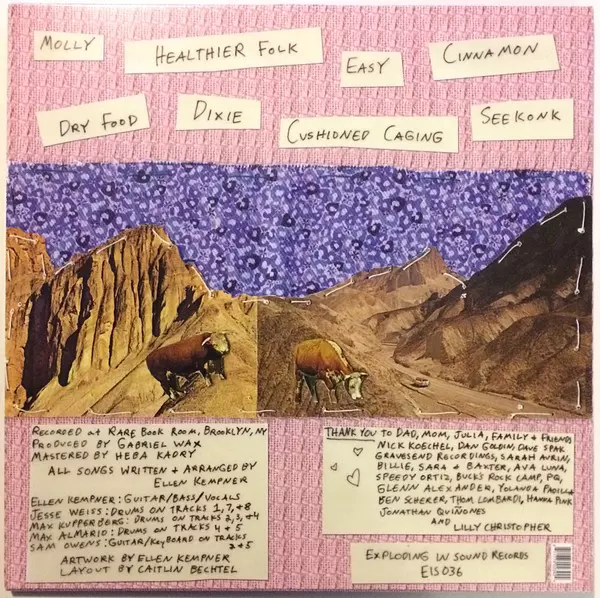 MOLLY
HEALTHIER FOLK
EASY
CINNAMON
DRY FOOD
DIXIE
CUSHIONED CAGING
SEEKONK
RECORDED at RARE BOOK ROOM, BROOKLYN, NY
PRODUCED BY GABRIEL WAX
MASTERED BY HEBA KADRY
ALL SONGS WRITTEN + ARRANGED BY
ELLEN KEMPNER
ELLEN KEMPNER: GUITAR/BASS/VOCALS
JESSE WEISS: DRUMS ON TRACKS 1, 7, +8
MAX KUPPERBERG: DRUMS ON TRACKS 2, 3, +4
MAX ALMARIO: DRUMS ON TRACKS 4 + 5
SAM OWENS: GUITAR/KEYBOARD ON TRACKS
2 + 5
ARTWORK BY ELLEN KEMPNER
LAYOUT BY CAITLIN BECHTEL
THANK YOU TO DAD, MOM, JULIA, FAMILY + FRIENDS
NICK KOECHEL, DAN GOLDIN, DAVE SPAK
GRAVESEND RECORDINGS, SARAH AVRIN,
BILLIE, SARA + BAXTER, AVA LUNA,
SPEEDY ORTIZ, BUCK'S ROCK CAMP, PQ,
GLENN ALEXANDER, YOLANDA PADILLA
BEN SCHERER, THOM LOMBARDI, HANNA PINK
JONATHAN QUIÑONES
AND
LILLY CHRISTOPHER
EXPLODING IN SOUND RECORDS
EIS 036